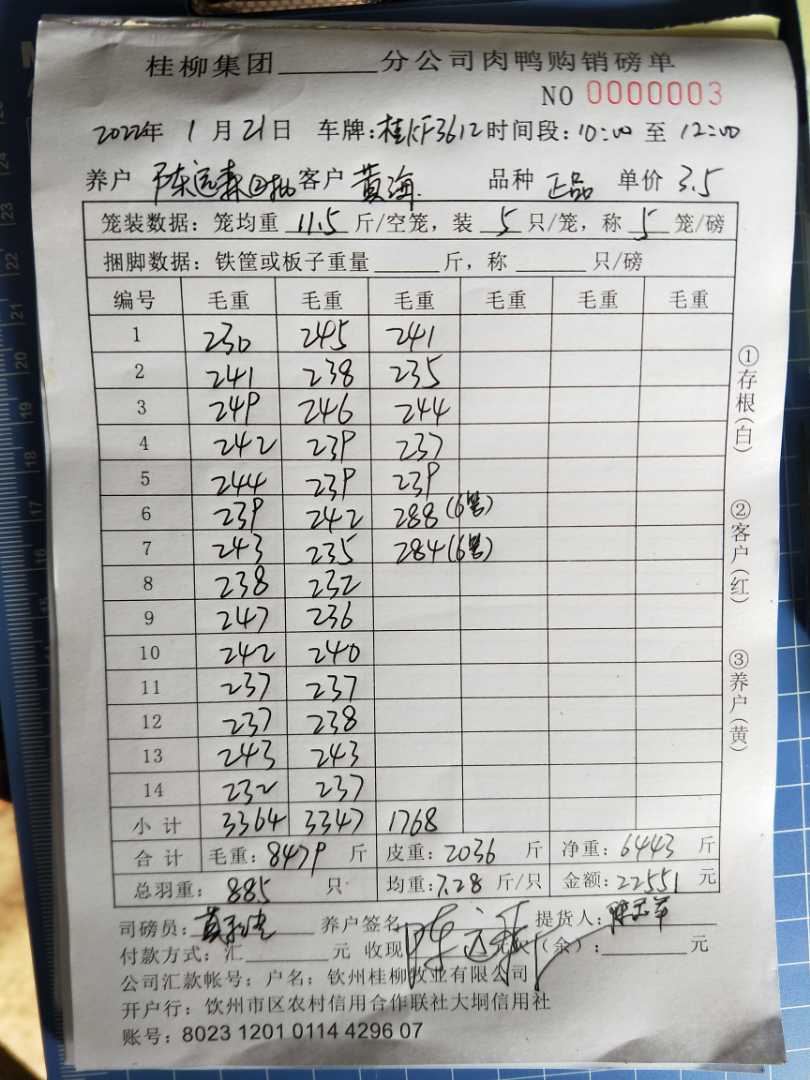 桂柳集团______分公司肉鸭购销磅单
NO 0000003
2022年 1月21日 车牌:桂KF3612 时间段:10:00 至 12:00
养户 陈远森②批 客户 黄海 品种 正品 单价 3.5
笼装数据:笼均重 11.5 斤/空笼,装 5 只/笼,称 5 笼/磅
捆脚数据:铁筐或板子重量______斤,称______只/磅
编号 毛重 毛重 毛重 毛重 毛重 毛重
1 230 245 241
2 241 238 235
3 249 246 244
4 242 239 237
5 244 239 239
6 239 242 288(6笼)
7 243 235 284(6笼)
8 238 232
9 247 236
10 242 240
11 237 237
12 237 238
13 243 243
14 232 237
小计 3364 3347 1768
合计 毛重:8479 斤 皮重:2036 斤 净重:6443 斤
总羽重:885 只 均重:7.28 斤/只 金额:22551 元
司磅员: 养户签名 陈远森 提货人:
付款方式:汇______元 收现 (余):______元
公司汇款帐号:户名:钦州桂柳牧业有限公司
开户行:饮州市区农村信用合作联社大垌信用社
账号:8023 1201 0114 4296 07
①存根(白)
②客户(红)
③养户(黄)